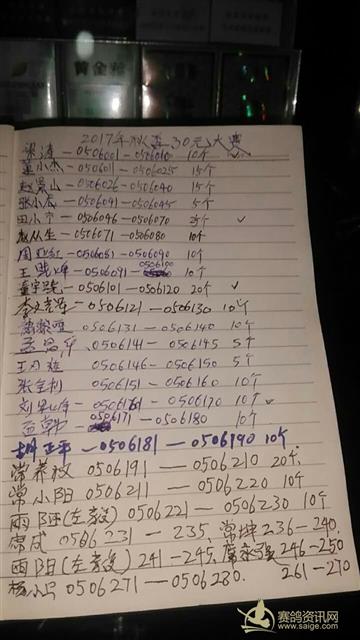 黄金
2017年秋季30元大赛
梁涛—0506001—0506010 10个
董小杰—0506011—0506025 15个
赵宝山—0506026—0506040 15个
张小虎—0506041—0506045 5个
田小宁—0506046—0506070 25个 ✓
赵从生—0506071—0506080 10个
周—0506081—0506090 10个
王—0506091—0506100 10个
董宝—0506101—0506120 20个 ✓
李文—0506121—0506130 10个
0506131—0506140 10个
孟—0506141—0506145 5个
王 0506146—0506150 5个
张金利 0506151—0506160 10个
刘 0506161—0506170 10个
孟 0506171—0506180 10个
胡正平—0506181—0506190 10个
常 0506191—0506210 20个
常小阳—0506211—0506220 10个
雨阳(左毅) 0506221—0506230 10个
常成 0506231—235. 常坤236—240.
雨阳(左毅)241—245. 席永强246—250
杨小马 0506271—0506280. 261—270
赛鸽资讯网
www.saige.com